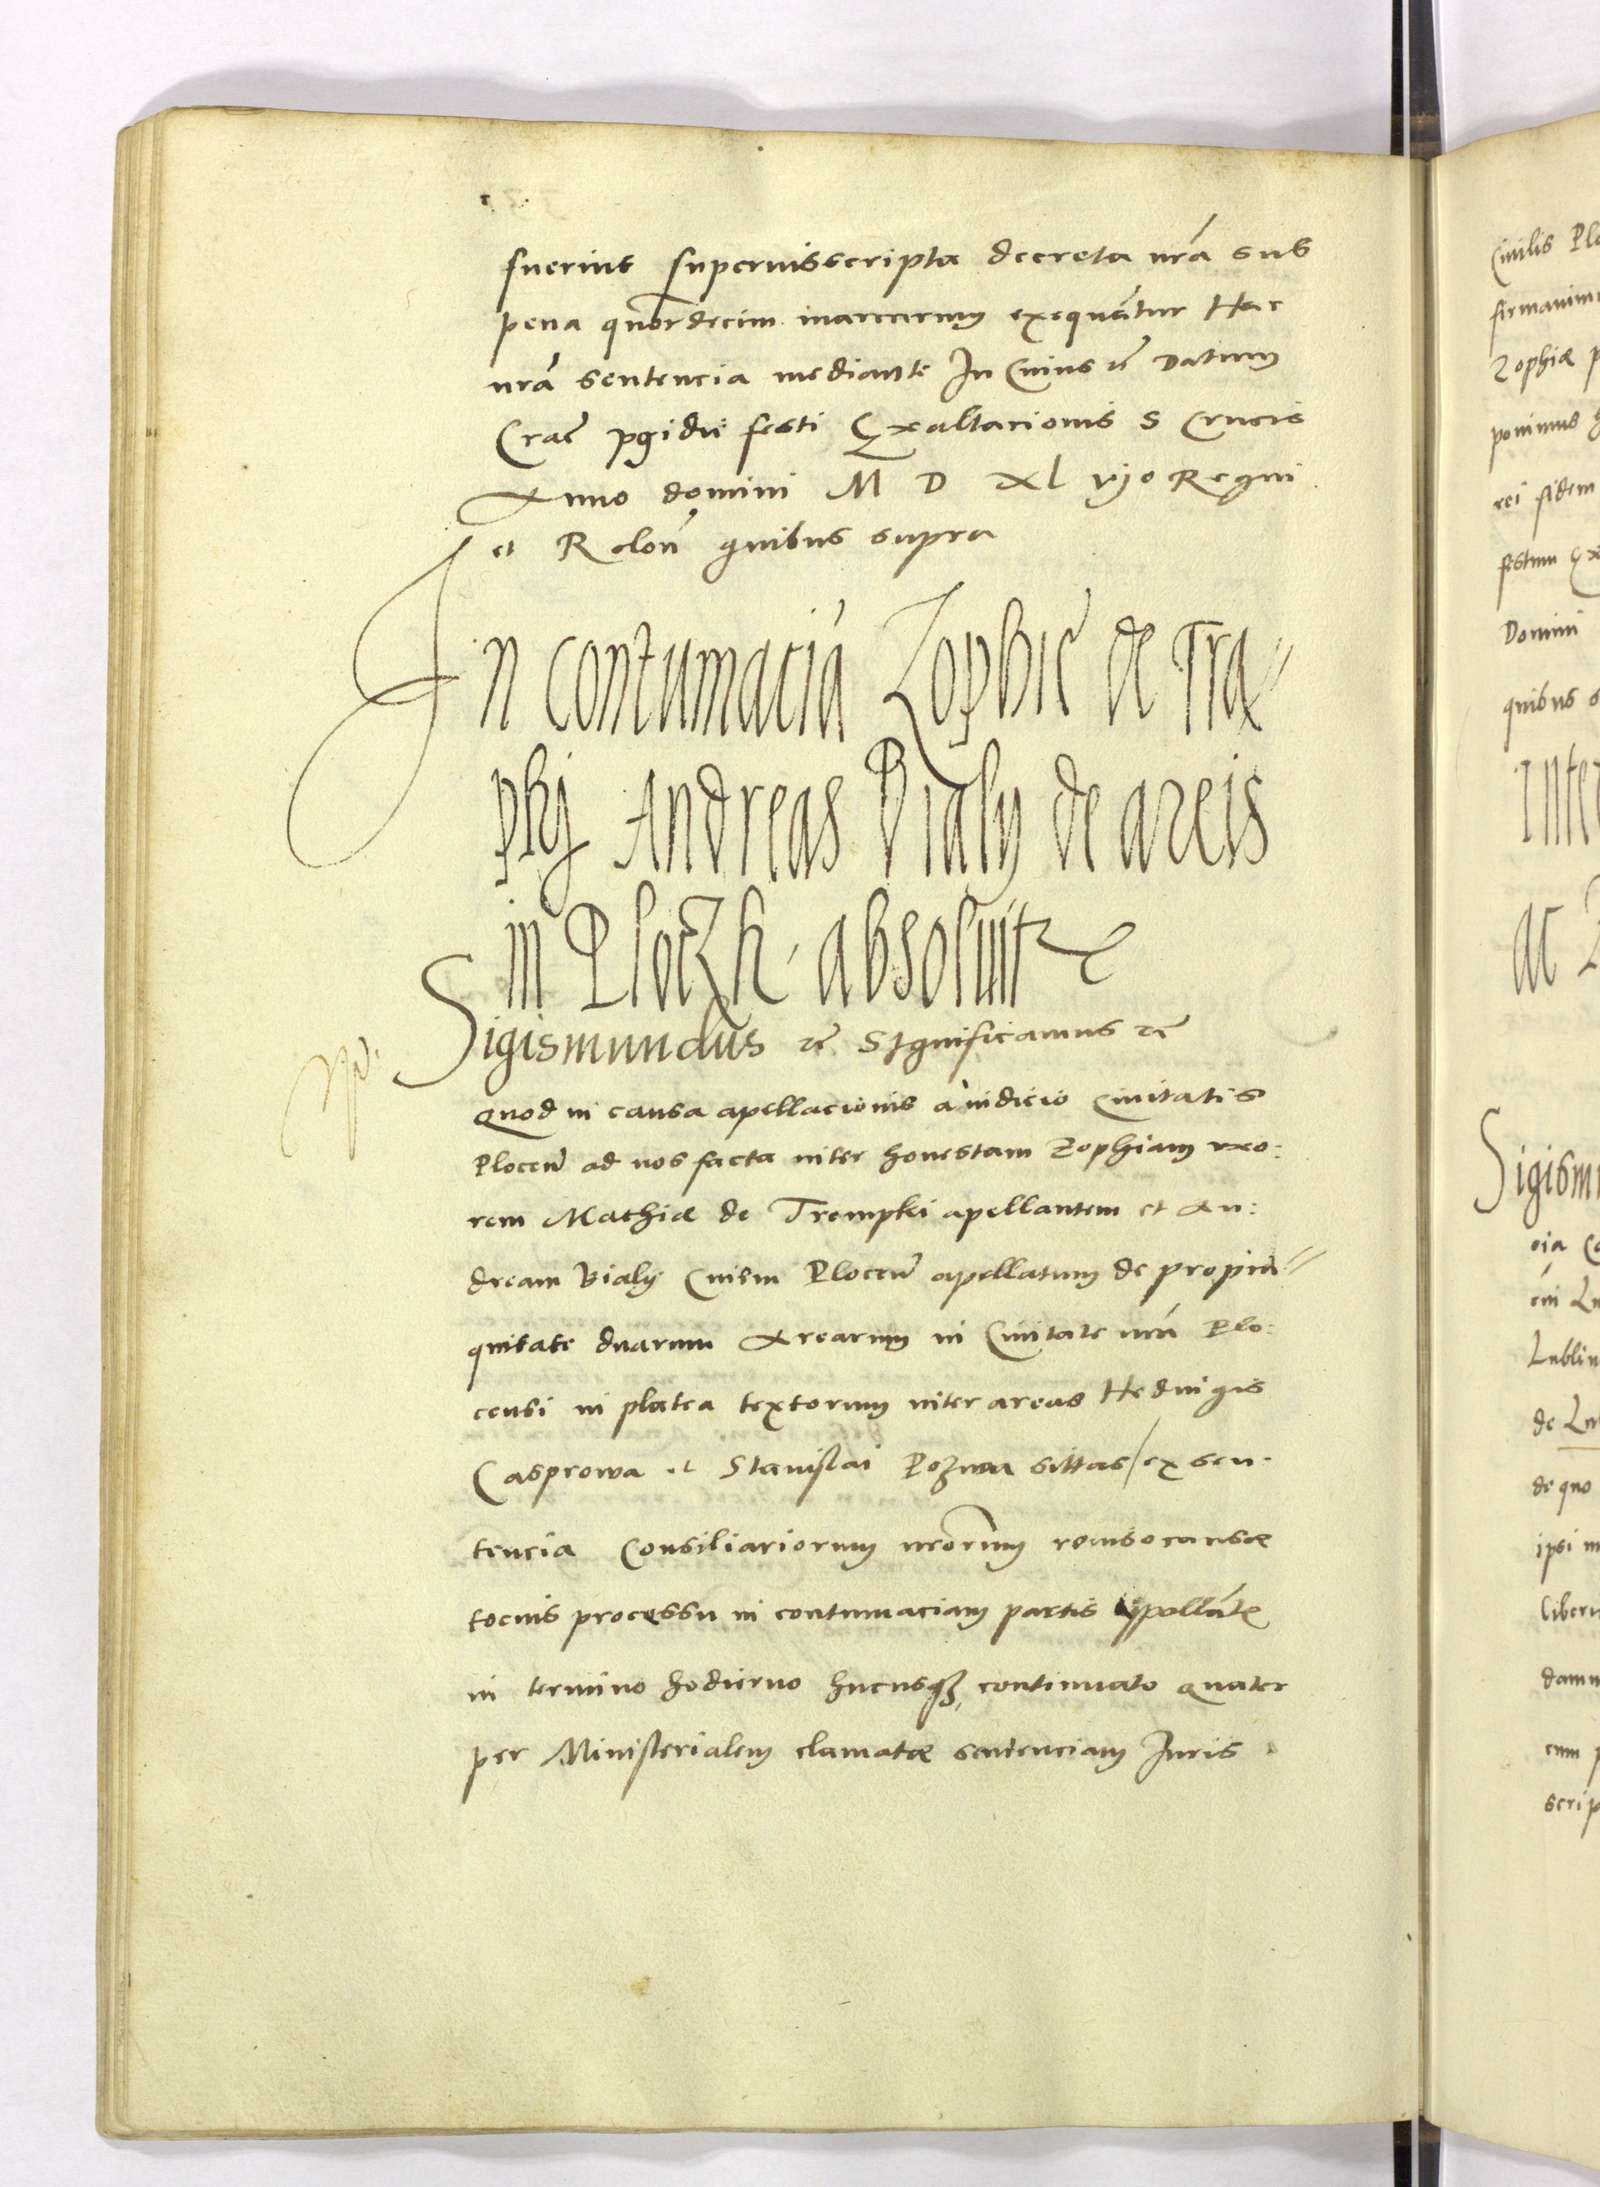 fuerint supervisscripta decreta nrã sub
pena quõrdecim marcarum exequãntur Hac
nrã sentencia mediante In Cuius rẽ Datum
Crac̃ pridie festi Exaltacionis S Crucis
Anno domini M D Xl vijo Regni
et R oloñ quibus supra
In contumaciã Zophie de Tra//
phj Andreas Bialy de areis
in Ploczk absoluitr
Sigismundus rẽ Significamus rẽ
Quod in causa apellacionis a iudicio Ciuitatis
Ploceñ ad nos facta inter honestam Zophiam vxo:
rem Mathiæ de Trempki apellantem et An:
dream Bialy Ciuem Ploceñ apellatum de propin//
quitate duarum Arearum in Ciuitate nrã Plo:
censi in platea textorum inter areas Heduigis
Casprowa et Stanislai Pozwa sittas / ex sen:
tencia Consiliariorum nrorum reuiso causæ
tocius processu in contumaciam partis appellãte
in termino hodierno hucusqз continuato quater
per Ministerialem clamatæ sentenciam Juris
Ciuilis Plo
firmauimu
Zophiæ p
ponimus
rei fidem
festum Ex
Domini
quibus s
Inter
ac
Sigism
cia
Lublin
de Lu
de quo
ipsi
liber
damn
cum p
scrip